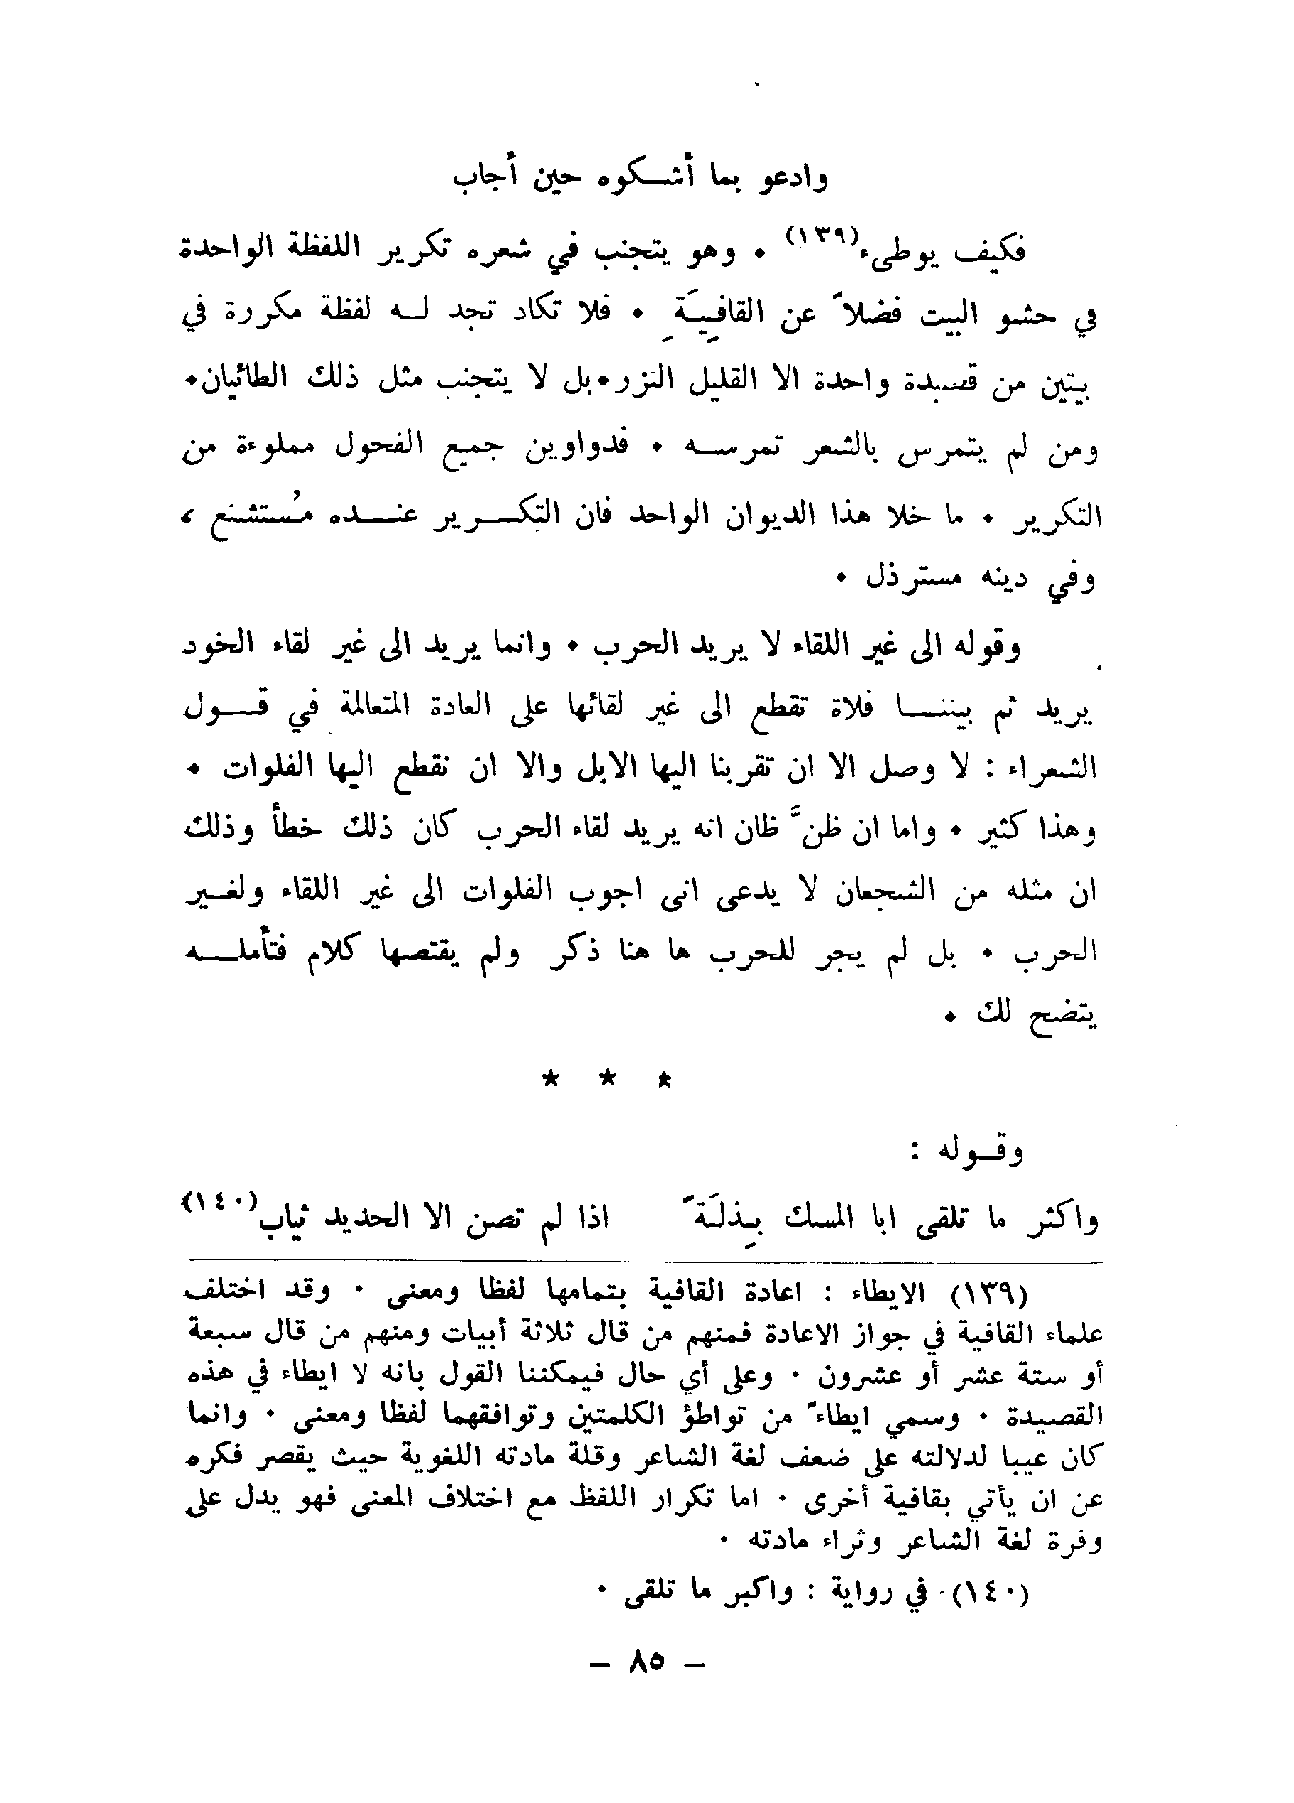 وادعو بما أشكوه حين أجاب
فكيف يوطىء(١٣٩) • وهو يتجنب في شعره تكرير اللفظة الواحدة
في حشو البيت فضلاً عن القافِيَةِ • فلا تكاد تجد له لفظة مكررة في
بيتين من قصيدة واحدة الا القليل النزر•بل لا يتجنب مثل ذلك الطائيان•
ومن لم يتمرس بالشعر تمرسه • فدواوين جميع الفحول مملوءة من
التكرير • ما خلا هذا الديوان الواحد فان التكرير عنده مُستشنع ،
وفي دينه مسترذل •
وقوله الى غير اللقاء لا يريد الحرب • وانما يريد الى غير لقاء الخود
يريد ثم بيننا فلاة تقطع الى غير لقائها على العادة المتعالمة في قول
الشعراء : لا وصل الا ان تقربنا اليها الابل والا ان نقطع اليها الفلوات •
وهذا كثير • واما ان ظنَّ ظان انه يريد لقاء الحرب كان ذلك خطأ وذلك
ان مثله من الشجعان لا يدعى انى اجوب الفلوات الى غير اللقاء ولغير
الحرب • بل لم يجر للحرب ها هنا ذكر ولم يقتصها كلام فتأمله
يتضح لك •
* * *
وقوله :
واكثر ما تلقى ابا المسك بِذلَةً اذا لم تصن الا الحديد ثياب(١٤٠)
(١٣٩) الايطاء : اعادة القافية بتمامها لفظا ومعنى • وقد اختلف
علماء القافية في جواز الاعادة فمنهم من قال ثلاثة أبيات ومنهم من قال سبعة
أو ستة عشر أو عشرون • وعلى أي حال فيمكننا القول بانه لا ايطاء في هذه
القصيدة • وسمي ايطاءً من تواطؤ الكلمتين وتوافقهما لفظا ومعنى • وانما
كان عيبا لدلالته على ضعف لغة الشاعر وقلة مادته اللغوية حيث يقصر فكره
عن ان يأتي بقافية أخرى • اما تكرار اللفظ مع اختلاف المعنى فهو يدل على
وفرة لغة الشاعر وثراء مادته •
(١٤٠) في رواية : واكبر ما تلقى •
– ٨٥ –